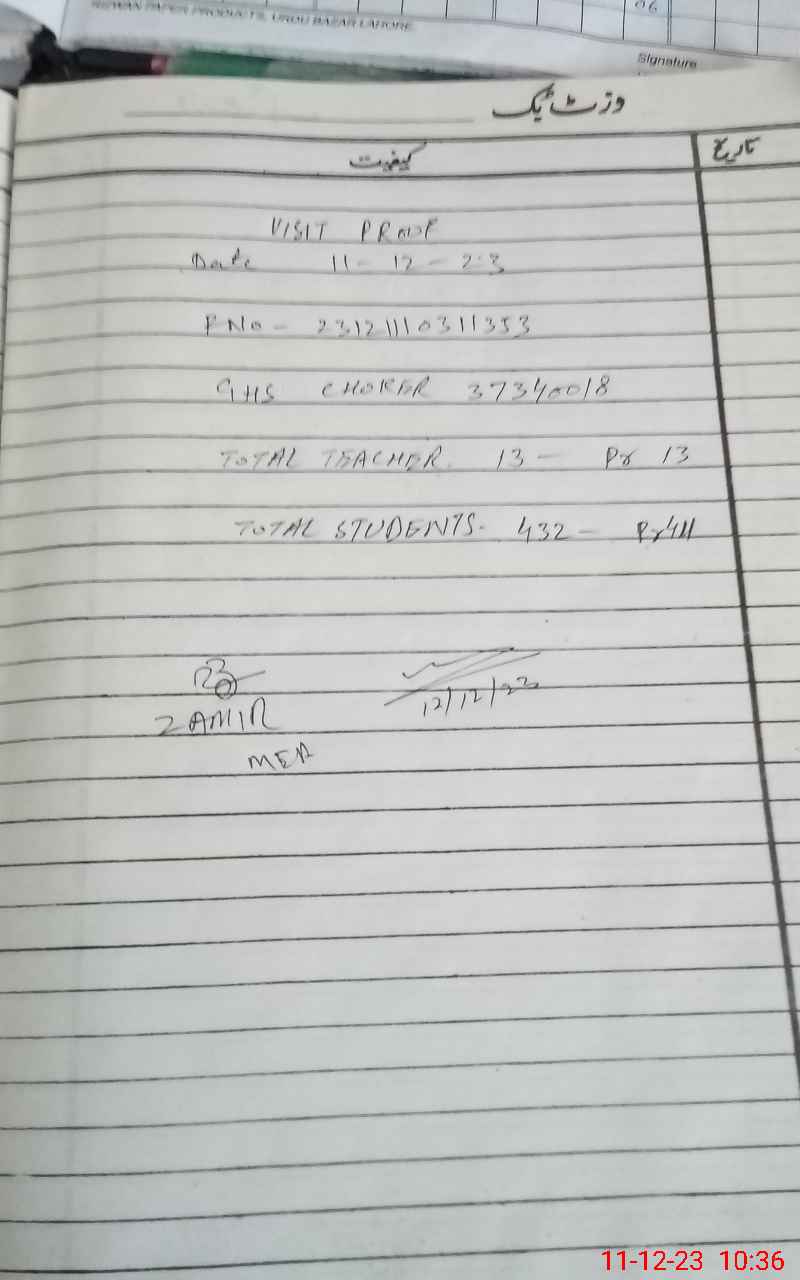 RIZWAN PAPER PRODUCTS, URDU BAZAR LAHORE
06
Signature
وزٹ بک
تاریخ
کیفیت
VISIT PROOF
Date 11-12-23
F No - 23121110311353
GHS CHOKER 37340018
TOTAL TEACHER. 13 - Pr 13
TOTAL STUDENTS. 432 - Pr 411
12/12/23
ZAMIR
MEA
11-12-23 10:36